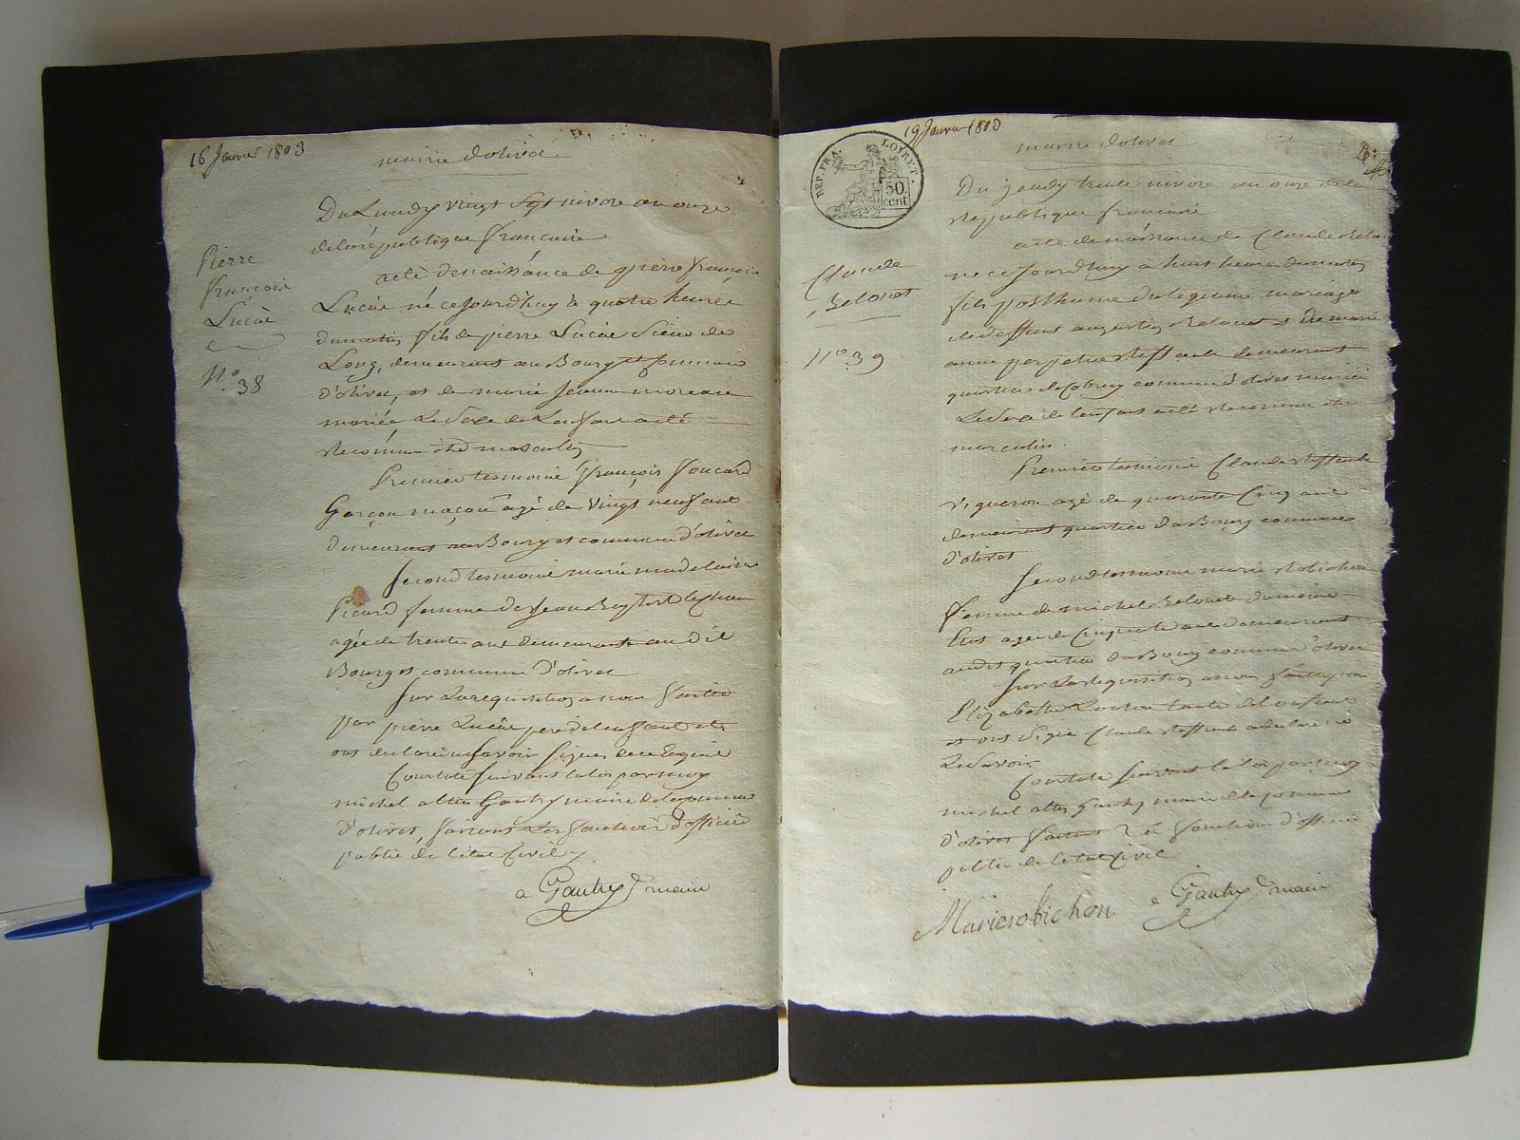 16 Janvier 1803
mairie d'olivet
Du Lundy vingt Sept nivose an onze
de la république françaire
acte de naissance de pierre françois
Lucàs né ce jourd'huy à quatre heures
du matin, fils de pierre Lucàs Sieur de
Long, demeurant au Bourg et commune
d'olivet, et de marie Jeanne moreau
mariés, Le Sexe de L'enfant a été
Reconnu être masculin
Premier temoins françois foucard
Garçon maçon agé de vingt neuf ans
demeurant au Bourg et commune d'olivet
Second temoins marie madelaine
Picard femme de Jean
agée de trente ans demeurante au dit
Bourg et commune d'olivet
Sur La requisition a nous faitte
par pierre Lucàs pere de l'enfant et
ont declaré ne Savoir Signer de ce Enquis
Constaté Suivant la loi par moy
michel alten Gautry maire de la commune
d'olivet, faisant Les fonctions d'officier
public de l'état Civil
a Gautry maire
Pierre
françois
Lucàs
N.o 38
19 Janvier 1803
REP. FRA. LOIRET. 50 cent
mairie d'olivet
Du jeudy trente nivose an onze de la
Republique francaise
acte de naissance de Claude
né ce jourd'huy à huit heures du matin
fils posthume du legitime mariage
de deffunt augustin et de marie
anne demeurant
quartier de commune d'olivet mariés
Le Sexe de l'enfant a été Reconnu être
masculin.
Premier temoins Claude
Vigneron agé de quarante Cinq ans
demeurant quartier du Bourg commune
d'olivet
Second temoins marie Robichon
femme de michel
agée de Cinquante ans demeurant
audit quartier du Bourg commune d'olivet
Sur La requisition a nous faitte par
Elizabette tante de l'enfant
et ont Signé Claude a declaré ne
Le Savoir
Constaté Suivant la loi par moy
michel alten Gautry maire de la commune
d'olivet faisant Les fonctions d'officier
public de l'état Civil
Marie robichon a Gautry maire
Claude
N.o 39